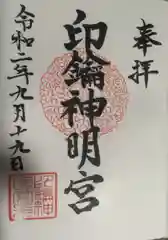 奉拝
印鑰神明宮
令和二年九月十九日